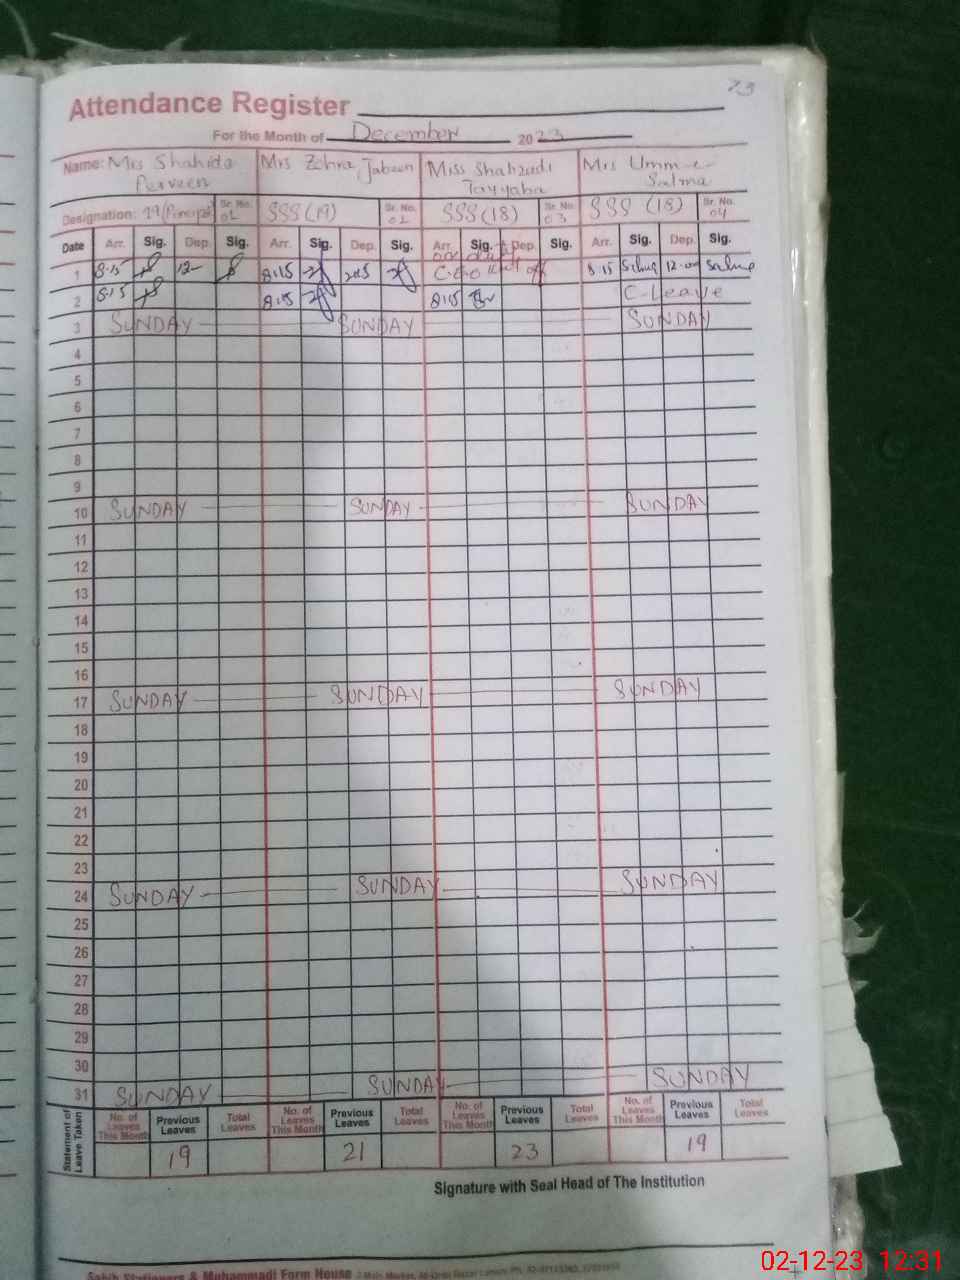 73
Attendance Register
For the Month of December 2023
Name: Mrs Shahida Perveen Mrs Zohra Jabeen Miss Shahzadi Tayyaba Mrs Umm-e-Salma
Designation: 19 (Principal) Sr. No. 01 SSS (19) Sr. No. 02 SSS (18) Sr. No. 03 SSS (18) Sr. No. 04
Date Arr. Sig. Dep. Sig. Arr. Sig. Dep. Sig. Arr. Sig. Dep. Sig. Arr. Sig. Dep. Sig.
1 8.15 12- 8.15 2.15 on duty C.E.O 8.15 Salma 12.00 Salma
2 8.15 8.15 8.15 C-Leave
3 SUNDAY SUNDAY SUNDAY
4
5
6
7
8
9
10 SUNDAY SUNDAY SUNDAY
11
12
13
14
15
16
17 SUNDAY SUNDAY SUNDAY
18
19
20
21
22
23
24 SUNDAY SUNDAY SUNDAY
25
26
27
28
29
30
31 SUNDAY SUNDAY SUNDAY
Statement of Leave Taken No. of Leaves This Month Previous Leaves Total Leaves No. of Leaves This Month Previous Leaves Total Leaves No. of Leaves This Month Previous Leaves Total Leaves No. of Leaves This Month Previous Leaves Total Leaves
19 21 23 19
Signature with Seal Head of The Institution
Sahib Stationers & Muhammadi Form House
02-12-23 12:31